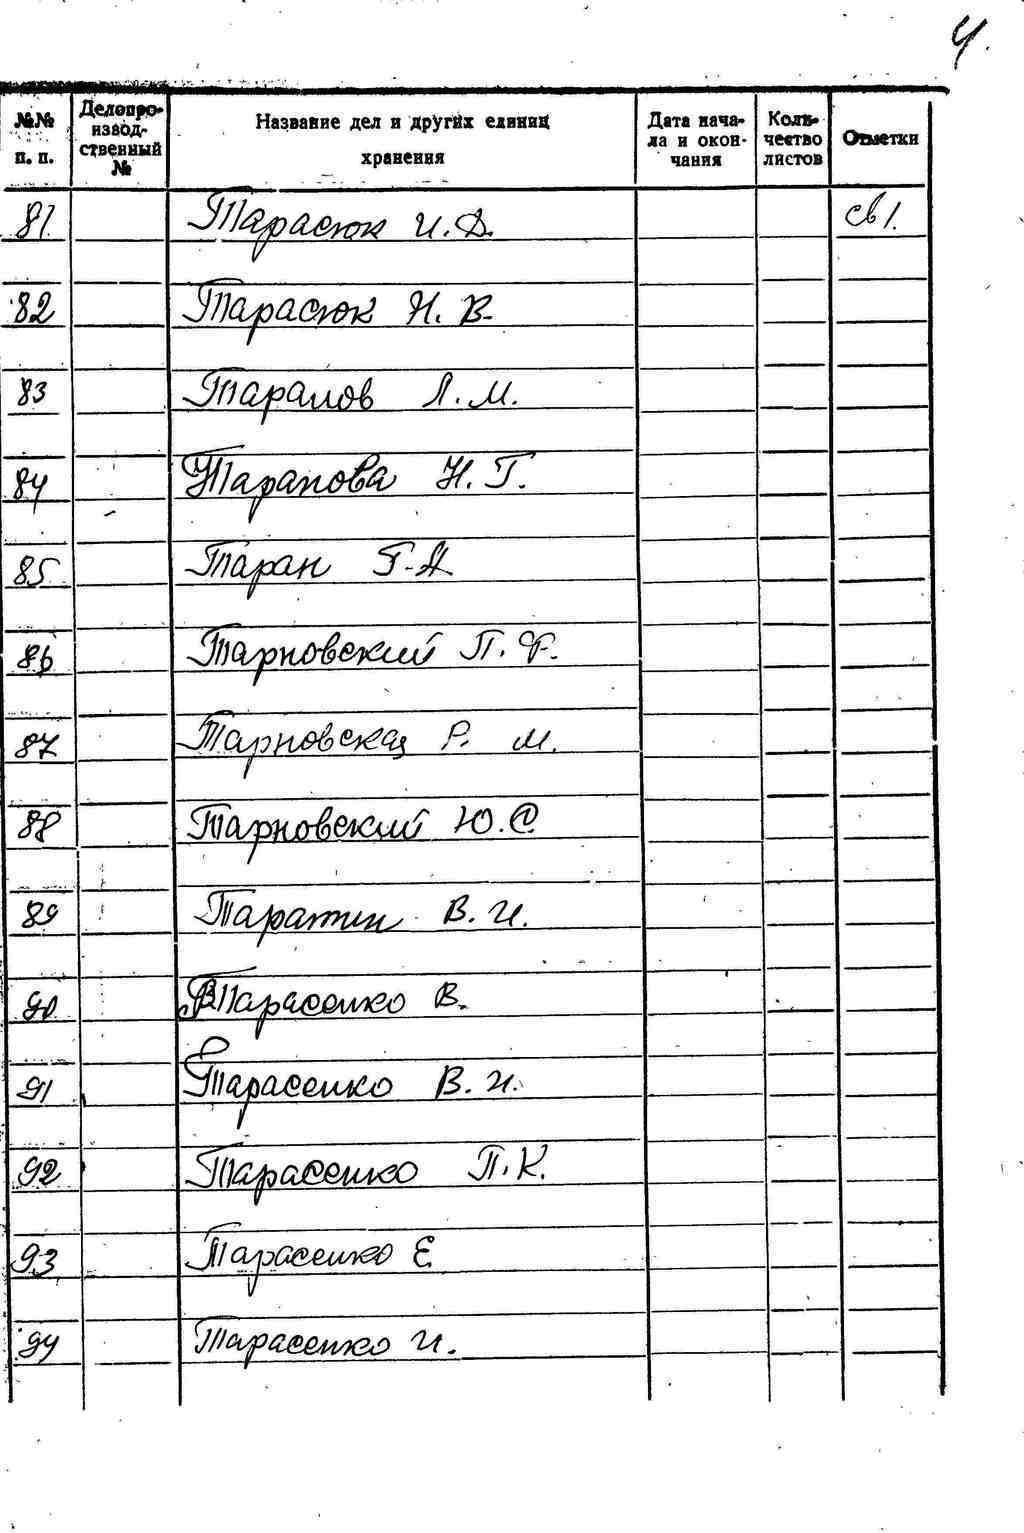 4.
№№ п. п.
Делопро-
извод-
ственный
№
Название дел и других единиц
хранения
Дата нача-
ла и окон-
чания
Коли-
чество
листов
Отметки
81. Тарасюк И. Д. св 1.
82 Тарасюк Н. В.
83 Тарапов Л. М.
84 Тарапова Н. Г.
85 Таран Г. А
86 Тарновский П. Ф.
87 Тарновская Р. М.
88 Тарновский Ю. С
89 Таратин В. И.
90 Тарасенко В.
91 Тарасенко В. И.
92 Тарасенко П. К.
93 Тарасенко Е
94 Тарасенко И.